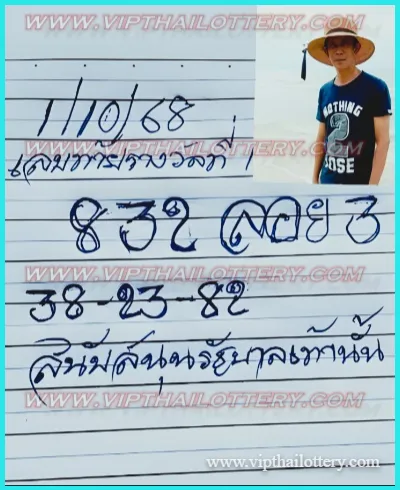 WWW.VIPTHAILOTTERY.COM
NOTHING
2
LOSE
1/10/68
เลขท้ายรางวัลที่ 1
WWW.VIPTHAILOTTERY.COM
832 ลอย 3
WWW.VIPTHAILOTTERY.COM
38-23-82
WWW.VIPTHAILOTTERY.COM
สนับสนุนรัฐบาลเท่านั้น
WWW.VIPTHAILOTTERY.COM
www.vipthailottery.com